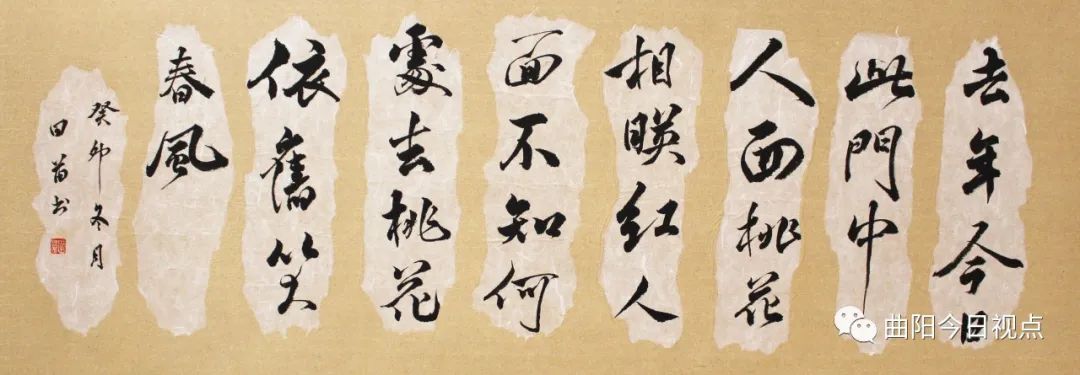 去年今日
此門中
人面桃花
相暎红人
面不知何
處去桃花
依舊笑
春風
癸卯冬月
田苗书
曲阳今日视点